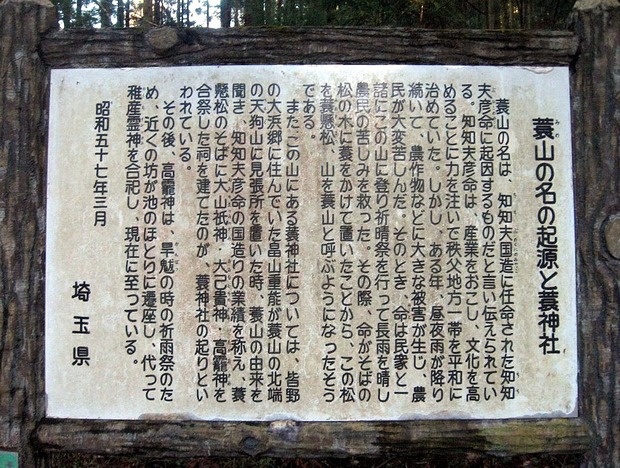 蓑山の名の起源と蓑神社
蓑山の名は、知知夫国造に任命された知知
夫彦命に起因するものだと言い伝えられてい
る。知知夫彦命は、産業をおこし、文化を高
めることに力を注いで秩父地方一帯を平和に
治めていた。しかし、ある年、昼夜雨が降り
続いて、農作物などに大きな被害が生じ、農
民が大変苦しんだ。そのとき、命は民家と一
諸にこの山に登り祈晴祭を行って長雨を晴し
農民の苦しみを救った。その際、命がそばの
松の木に蓑をかけて置いたことから、この松
を蓑懸松、山を蓑山と呼ぶようになったそう
である。
また、この山にある蓑神社については、皆野
の大浜郷に住んでいた畠山重能が蓑山の北端
の天狗山に見張所を置いた時、蓑山の由来を
聞き、知知夫彦命の国造りの業績を称え、蓑
懸松のそばに大山祇神・大己貴神・高龗神を
合祭した祠を建てたのが、蓑神社の起りとい
われている。
その後、高龗神は、旱魃の時の祈雨祭のた
め、近くの坊が池のほとりに遷座し、代って
稚産霊神を合祀し、現在に至っている。
昭和五十七年三月
埼玉県